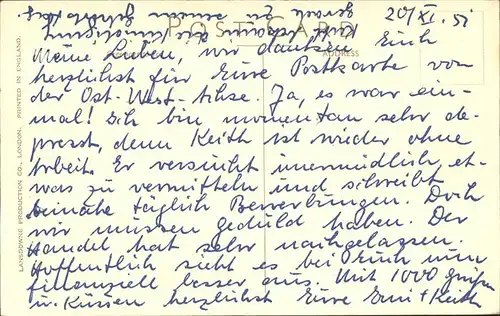 POST CARD
ADDRESS
20/XI. 51
Meine Lieben, wir danken Euch
herzlichst für Eure Postkarte von
der Ost-West-Achse. Ja, es war ein-
mal! Ich bin momentan sehr de-
presst, denn Keith ist wieder ohne
Arbeit. Er versucht unermüdlich, et-
was zu vermitteln und schreibt
beinahe täglich Bewerbungen. Doch
wir müssen geduld haben. Der
Handel hat sehr nachgelassen.
Hoffentlich sieht es bei Euch nun
finanziell besser aus. Mit 1000 Grüßen
u. Küssen herzlichst Eure Erni + Keith
LANSDOWNE PRODUCTION CO., LONDON. PRINTED IN ENGLAND.